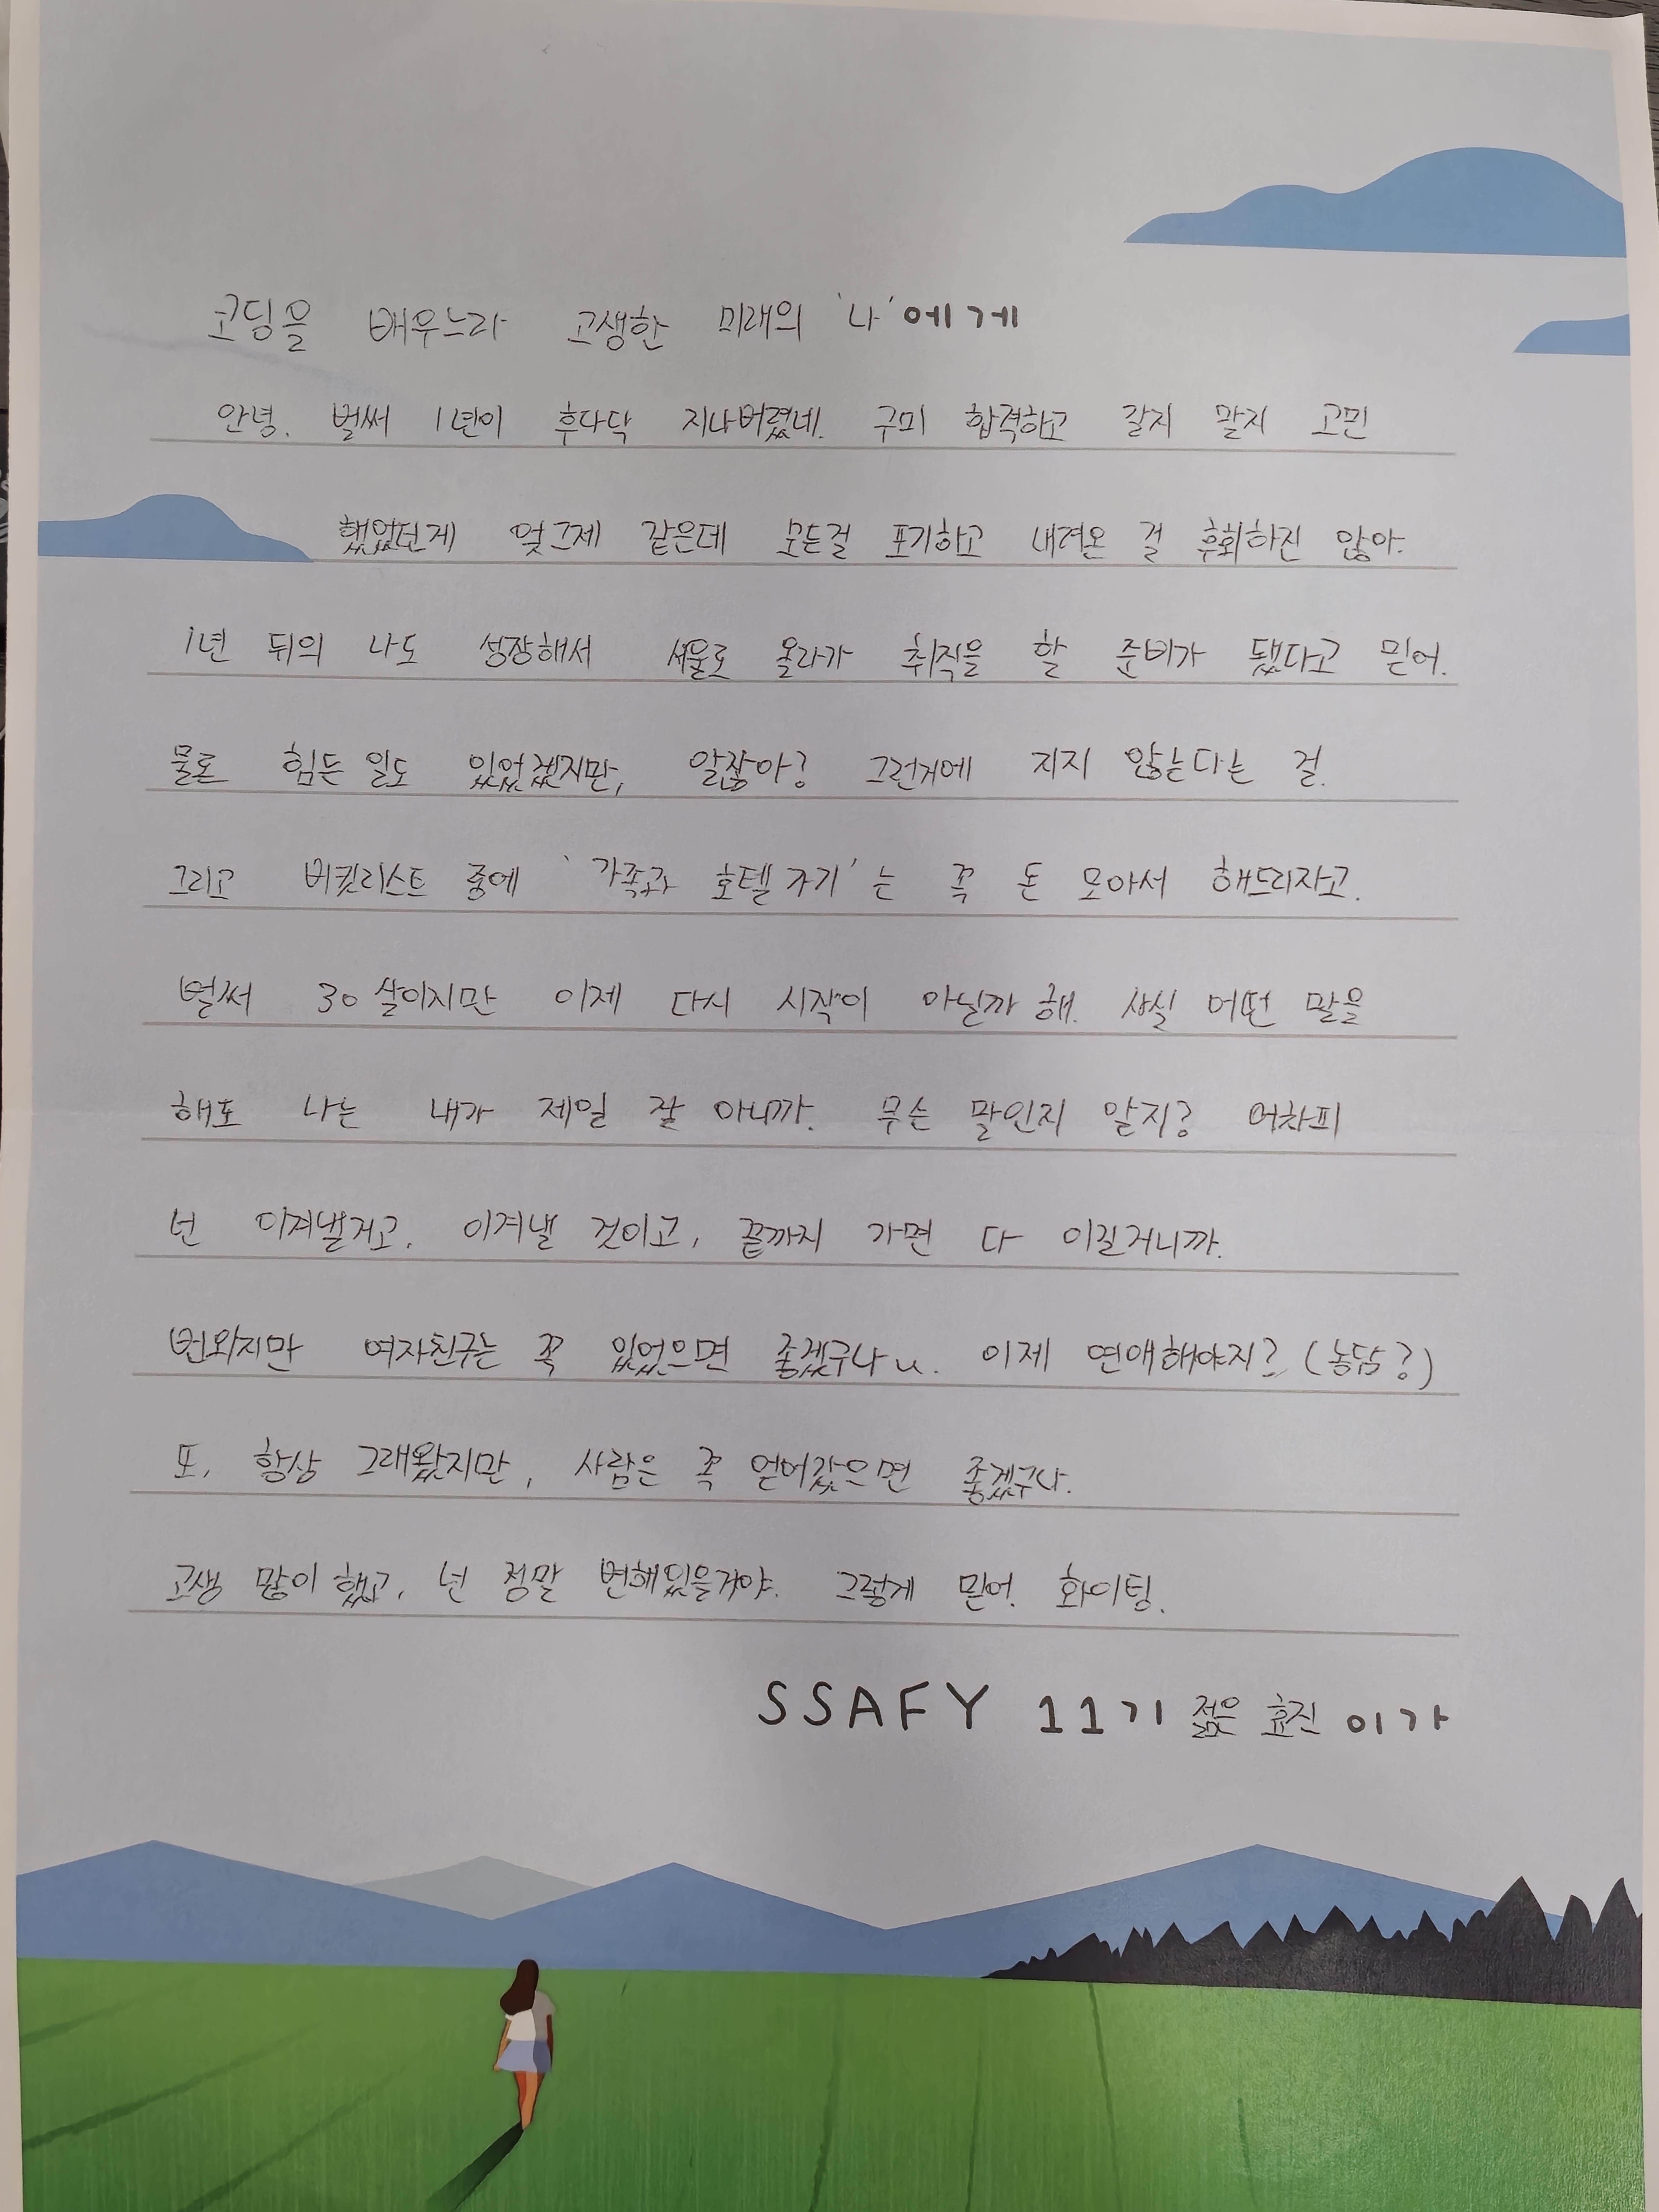 코딩을 배우느라 고생한 미래의 '나'에게
안녕. 벌써 1년이 후다닥 지나버렸네. 구미 합격하고 갈지 말지 고민
했었던게 엊그제 같은데 모든걸 포기하고 내려온 걸 후회하진 않아.
1년 뒤의 나도 성장해서 서울로 올라가 취직을 할 준비가 됐다고 믿어.
물론 힘든 일도 있었겠지만, 알잖아? 그런거에 지지 않는다는 걸.
그리고 버킷리스트 중에 '가족과 호텔가기'는 꼭 돈 모아서 해드리자고.
벌써 30살이지만 이제 다시 시작이 아닐까 해. 사실 어떤 말을
해도 나는 내가 제일 잘 아니까. 무슨 말인지 알지? 어차피
넌 이겨낼거고. 이겨낼 것이고, 끝까지 가면 다 이길거니까.
번외지만 여자친구는 꼭 있었으면 좋겠구나 ㅠ. 이제 연애해야지? (농담?)
또, 항상 그래왔지만, 사람은 꼭 얻어갔으면 좋겠구나.
고생 많이 했고, 넌 정말 변해있을거야. 그렇게 믿어. 화이팅.
SSAFY 11기 젊은 효진 이가